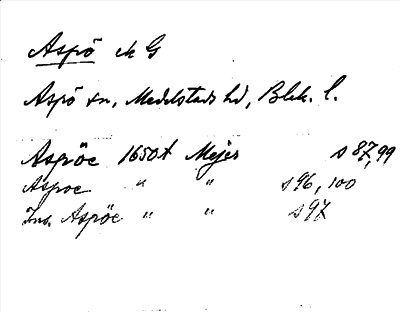 Aspö ck G
Aspö sn, Medelstads hd, Blek. l.
Aspöe 1650t Mejer s 87, 99
Aspoe " " s 96, 100
Ins. Aspöe " " s 97